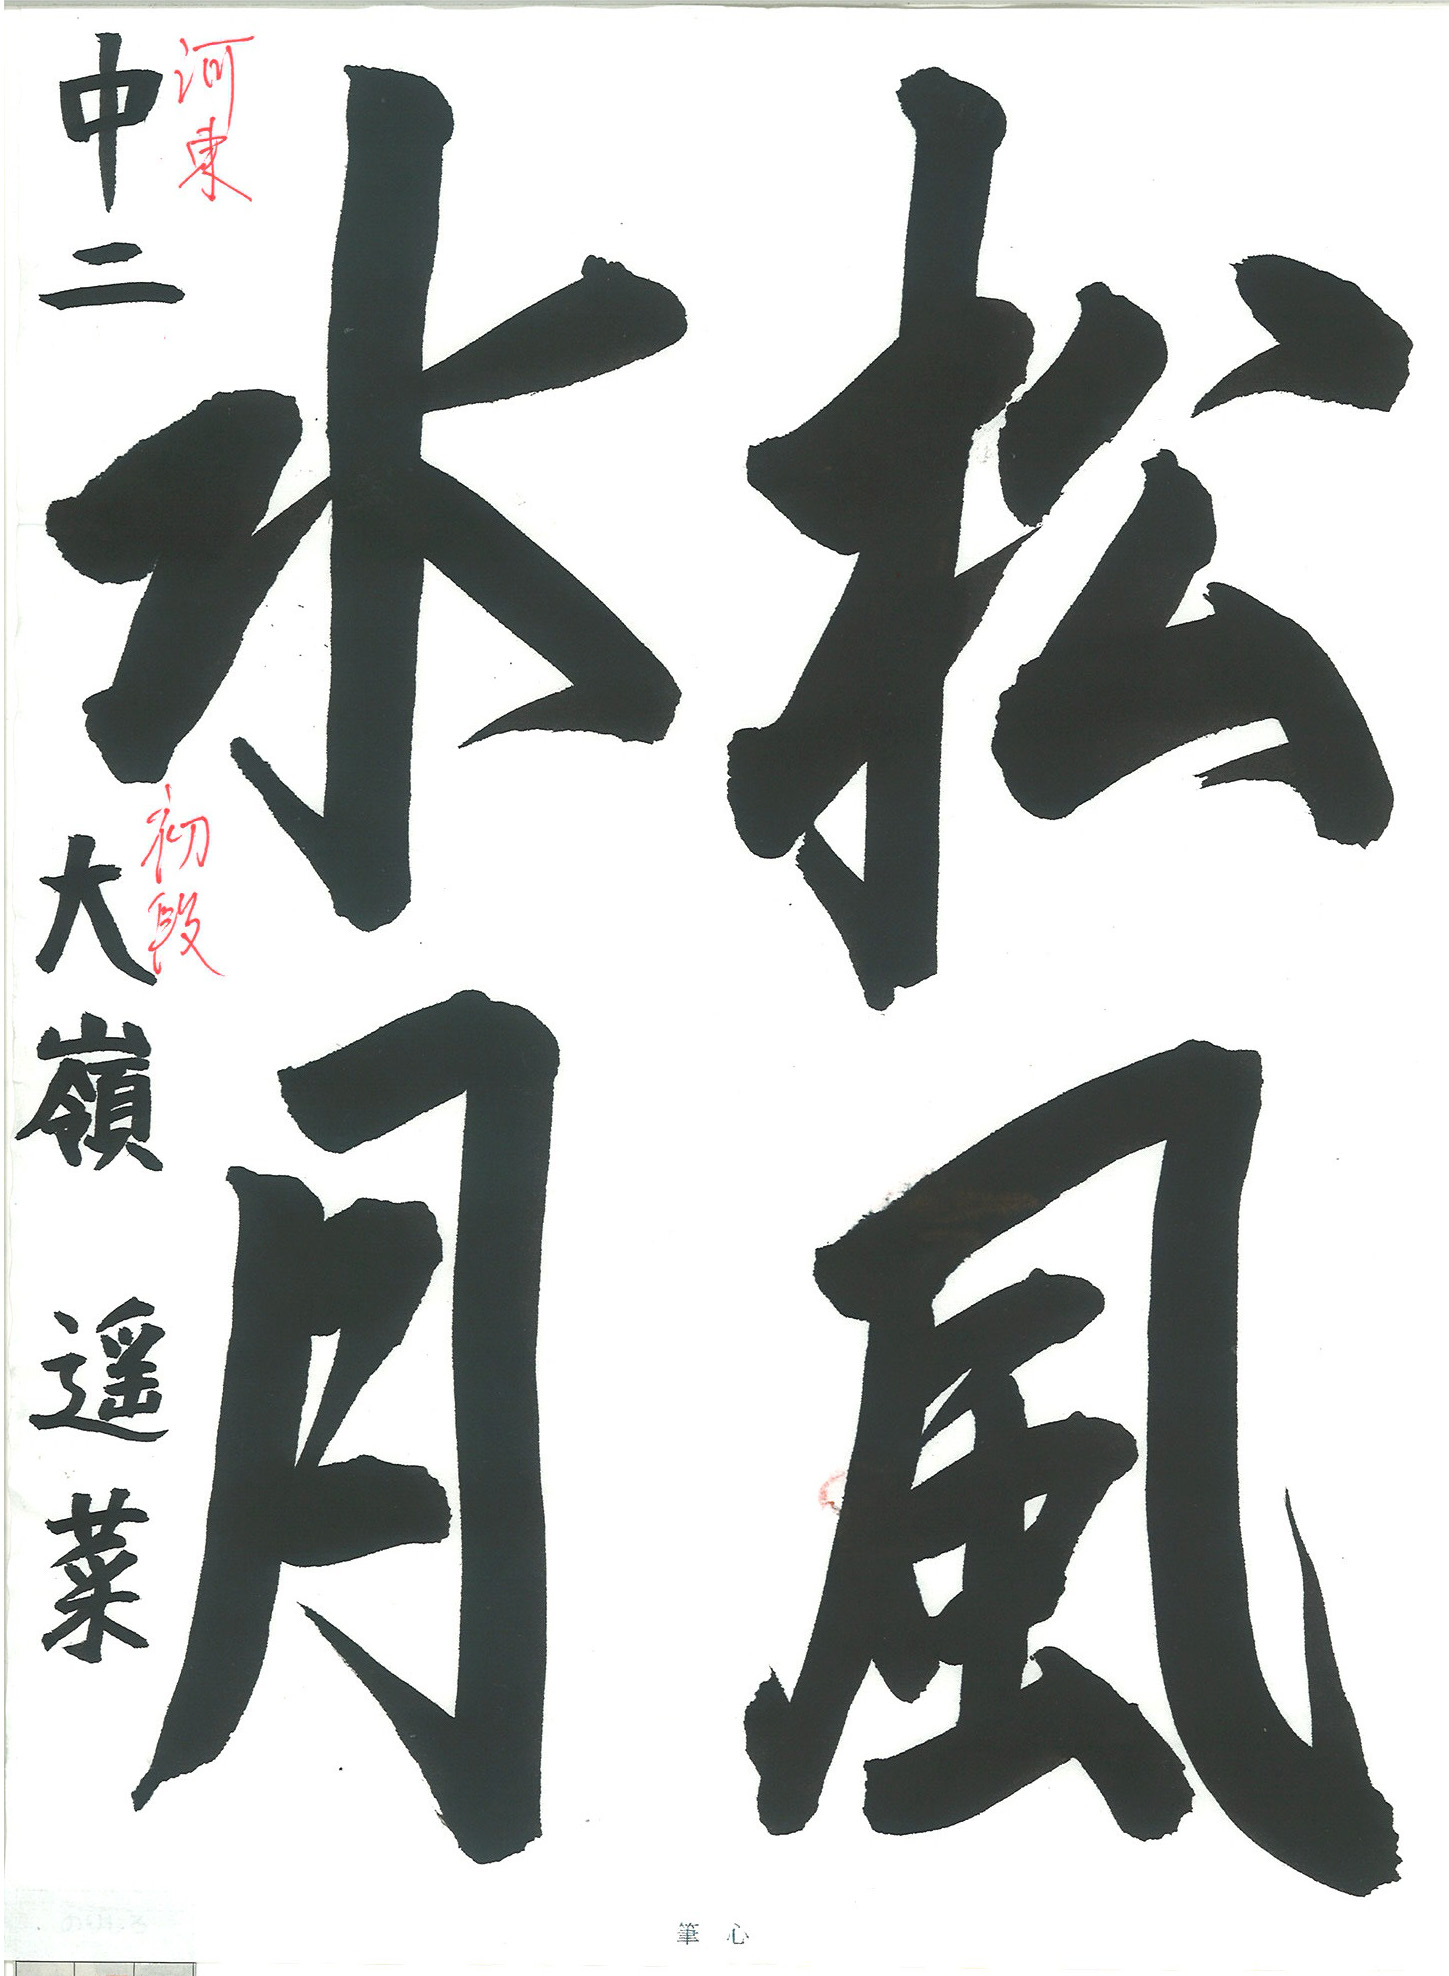 松風
水月
河東
初段
中二 大嶺 遥菜
筆心